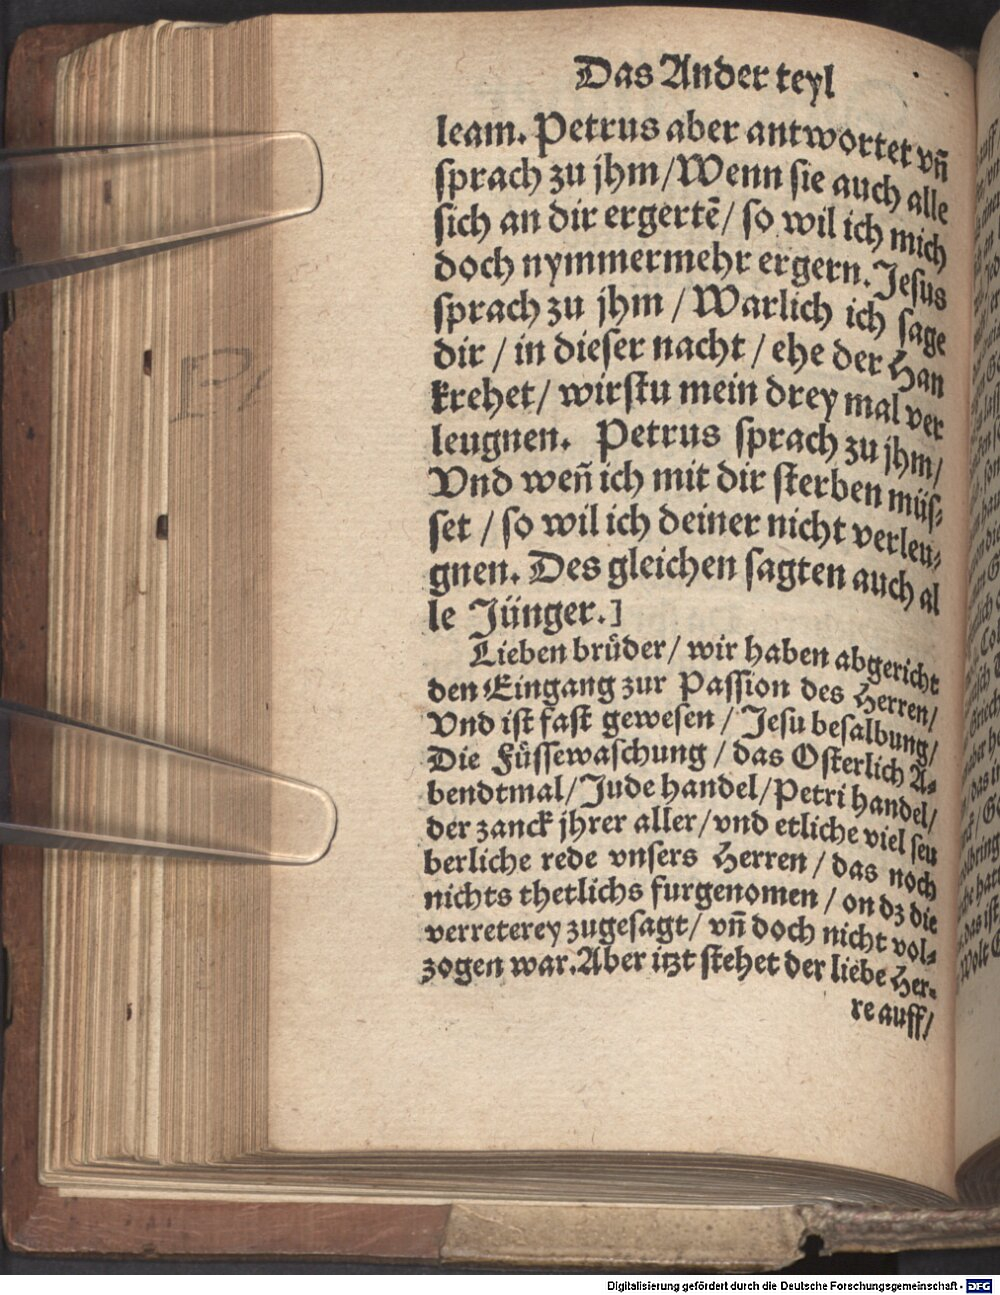 Das Ander teyl
leam. Petrus aber antwortet vñ
sprach zu jhm/Wenn sie auch alle
sich an dir ergertē/ so wil ich mich
doch nymmermehr ergern. Jesus
sprach zu jhm / Warlich ich sage
dir / in dieser nacht / ehe der Han
krehet/ wirstu mein drey mal ver
leugnen. Petrus sprach zu jhm/
Vnd weñ ich mit dir sterben müs⸗
set / so wil ich deiner nicht verleu⸗
gnen. Des gleichen sagten auch al
le Jünger.]
Lieben brůder/ wir haben abgericht
den Eingang zur Passion des Herren/
Vnd ist fast gewesen / Jesu besalbung/
Die Fůssewaschung / das Osterlich A⸗
bendtmal/ Jude handel/ Petri handel/
der zanck jhrer aller/ vnd etliche viel seu
berliche rede vnsers Herren / das noch
nichts thetlichs furgenomen / on dz die
verreterey zugesagt/ vñ doch nicht vol⸗
zogen war. Aber itzt stehet der liebe Her⸗
re auff/
Digitalisierung gefördert durch die Deutsche Forschungsgemeinschaft - DFG